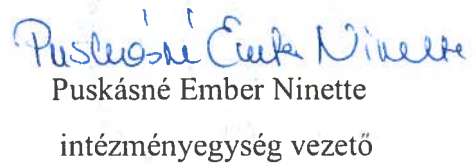 Puskásné Ember Ninette
Puskásné Ember Ninette
intézményegység vezető